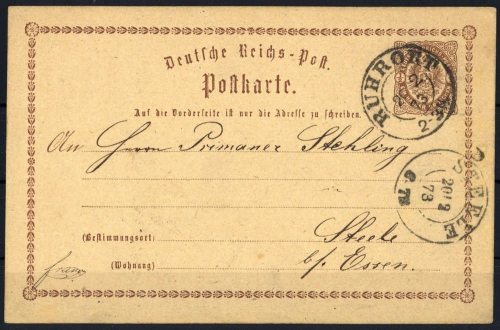 Deutsche Reichs-Post.
Postkarte.
RUHRORT
Auf die Vorderseite ist nur die Adresse zu schreiben.
An Herrn Primaner Stehling
STEELE
20/2
73
(Bestimmungsort)
Steele
(Wohnung)
b/. Essen.
franco